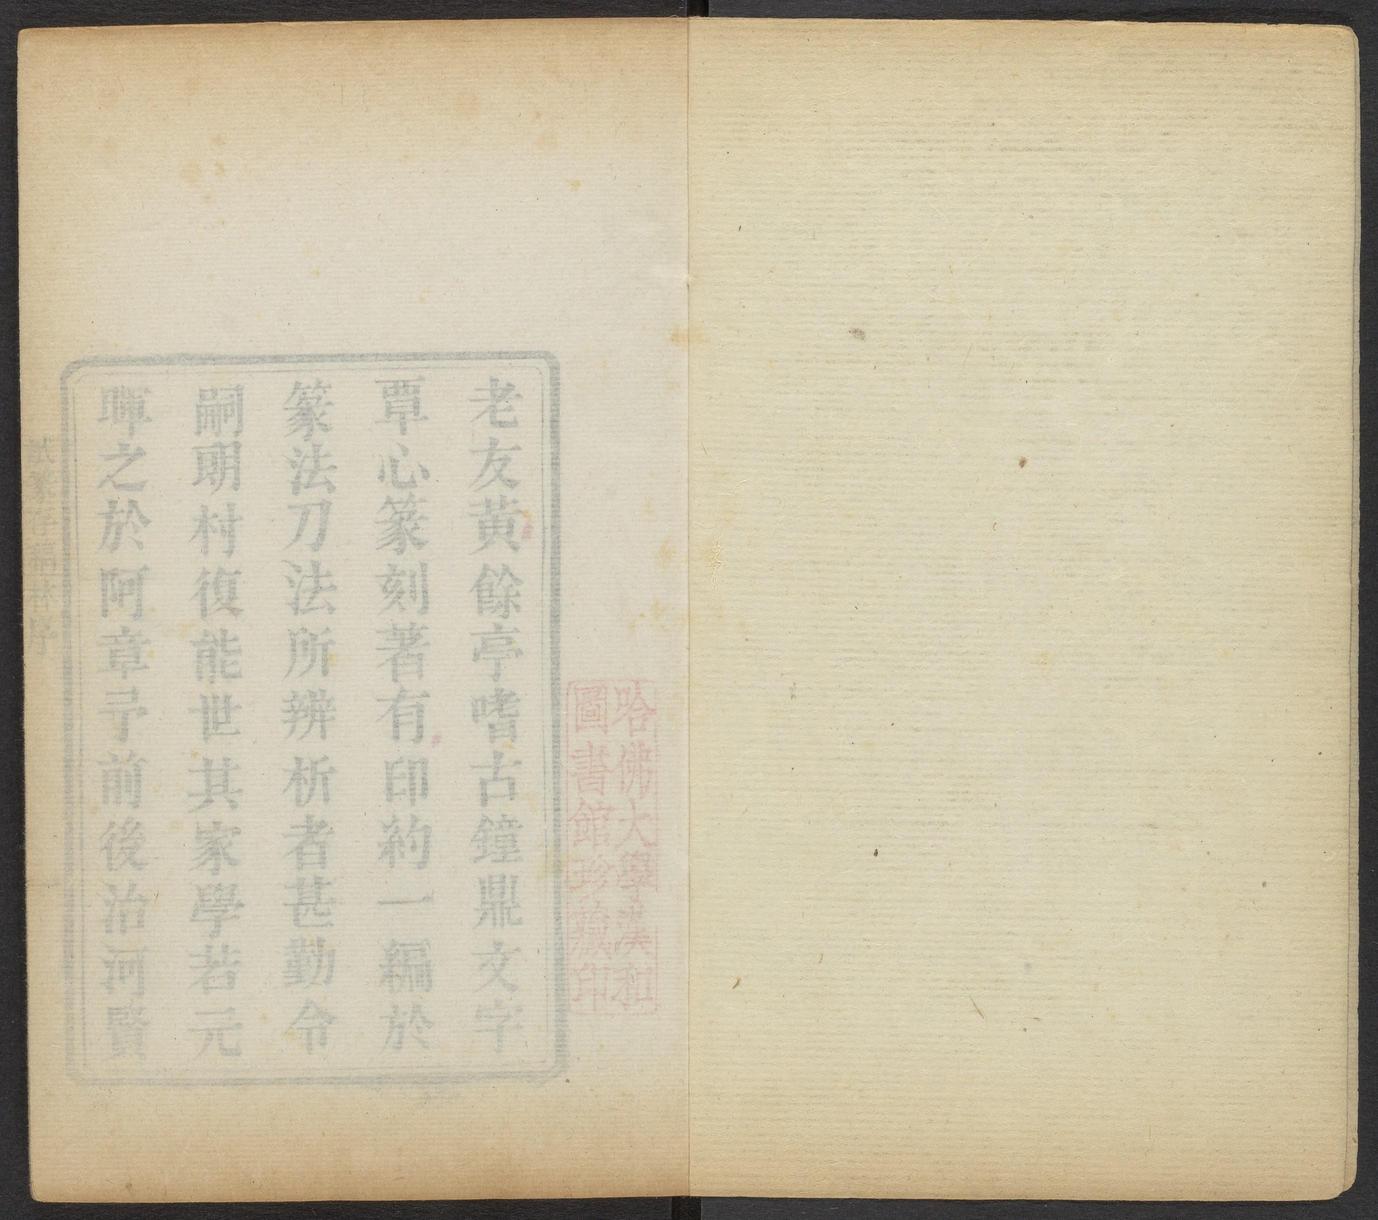 老友黃餘亭嗜古鐘鼎文字
覃心篆刻著有印約一編於
篆法刀法所辨析者甚勤令
嗣玥村復能世其家學若元
暉之於阿章予前後治河賢
哈佛大學漢和
圖書館珍藏印
試篆存稿林序
一